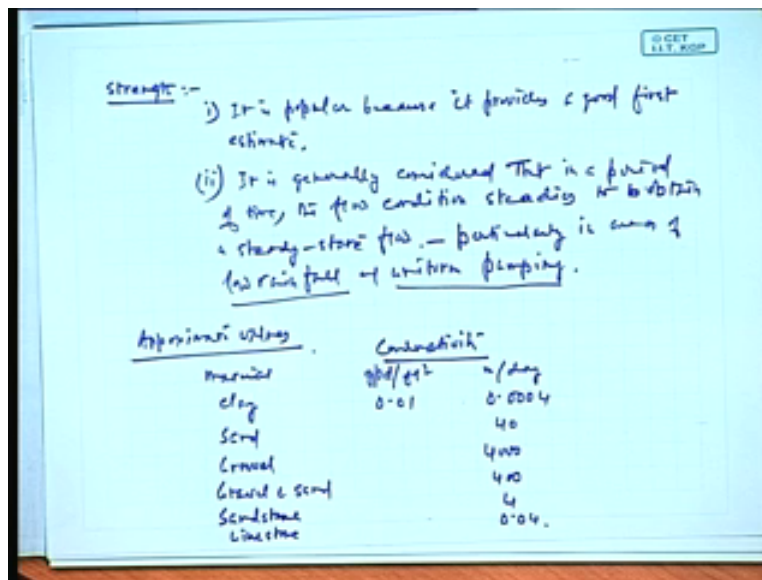 © CET
I.I.T. KGP
Strength :-
i) It is popular because it provides a good first
estimate.
(ii) It is generally considered that in a period
of time, the flow condition steadies to obtain
a steady-state flow. – particularly in areas of
low rainfall & uniform pumping.
Approximate values. Conductivity
Material gpd/ft² m/day
Clay 0.01 0.0004
Sand 40
Gravel 4000
Gravel & Sand 400
Sandstone 4
Limestone 0.04.